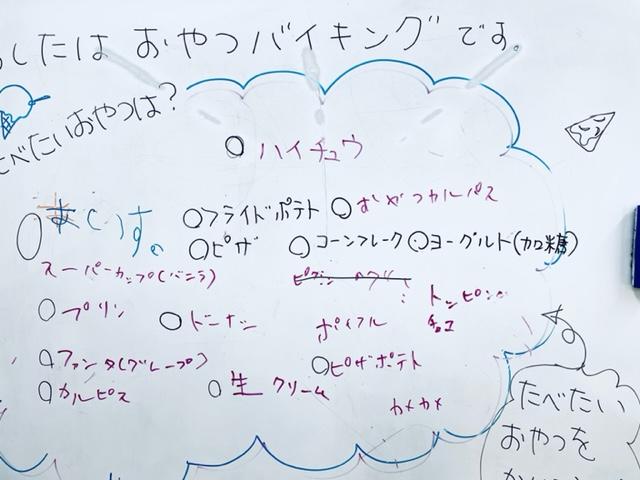 あしたは おやつバイキングです。
たべたいおやつは?
○ハイチュウ
○あいす。 ○フライドポテト ○おやつカルパス
○ピザ ○コーンフレーク ○ヨーグルト(加糖)
スーパーカップ(バニラ)
○プリン ○ドーナツ ポイフル トッピング
チョコ
○ファンタ(グレープ) ○ピザポテト
○カルピス ○生クリーム カメカメ
たべたい
おやつを